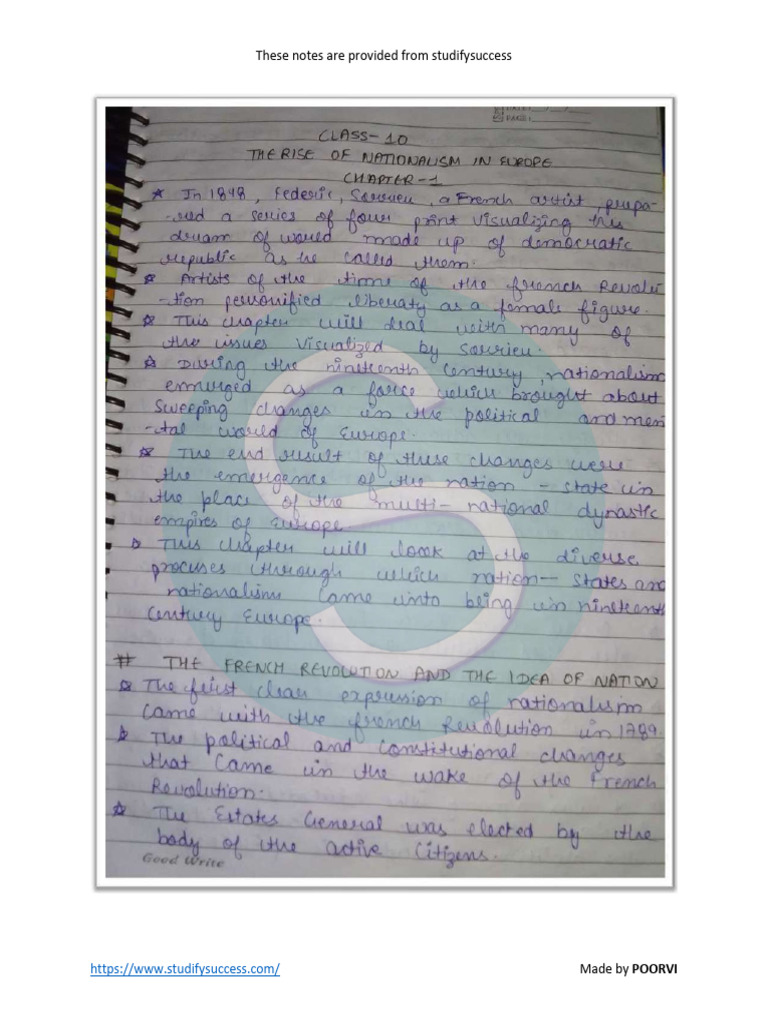 These notes are provided from studifysuccess
CLASS-10
THE RISE OF NATIONALISM IN EUROPE
CHAPTER-1
☆ In 1848, Federic, Sourieu, a French artist, prepa-
-red a series of four print visualizing his
dream of would made up of democratic
republic as he called them.
☆ Artists of the time of the french Revolu
-tion personified liberaty as a female figure.
☆ This chapter will deal with many of
the issues visualized by Sourieu.
☆ During the nineteenth century, nationalism
emerged as a force which brought about
Sweeping changes in the political and men
-tal world of Europe.
☆ The end result of these changes were
the emergence of the nation-state in
the place of the multi-national dynastic
empires of Europe.
☆ This chapter will look at the diverse
processes through which nation-states and
nationalism came into being in nineteenth
century Europe.
# THE FRENCH REVOLUTION AND THE IDEA OF NATION
☆ The first clear expression of nationalism
came with the french Revolution in 1789.
☆ The political and constitutional changes
that came in the wake of the French
Revolution.
☆ The Estates General was elected by the
body of the active citizens.
Good Write
https://www.studifysuccess.com/ Made by POORVI